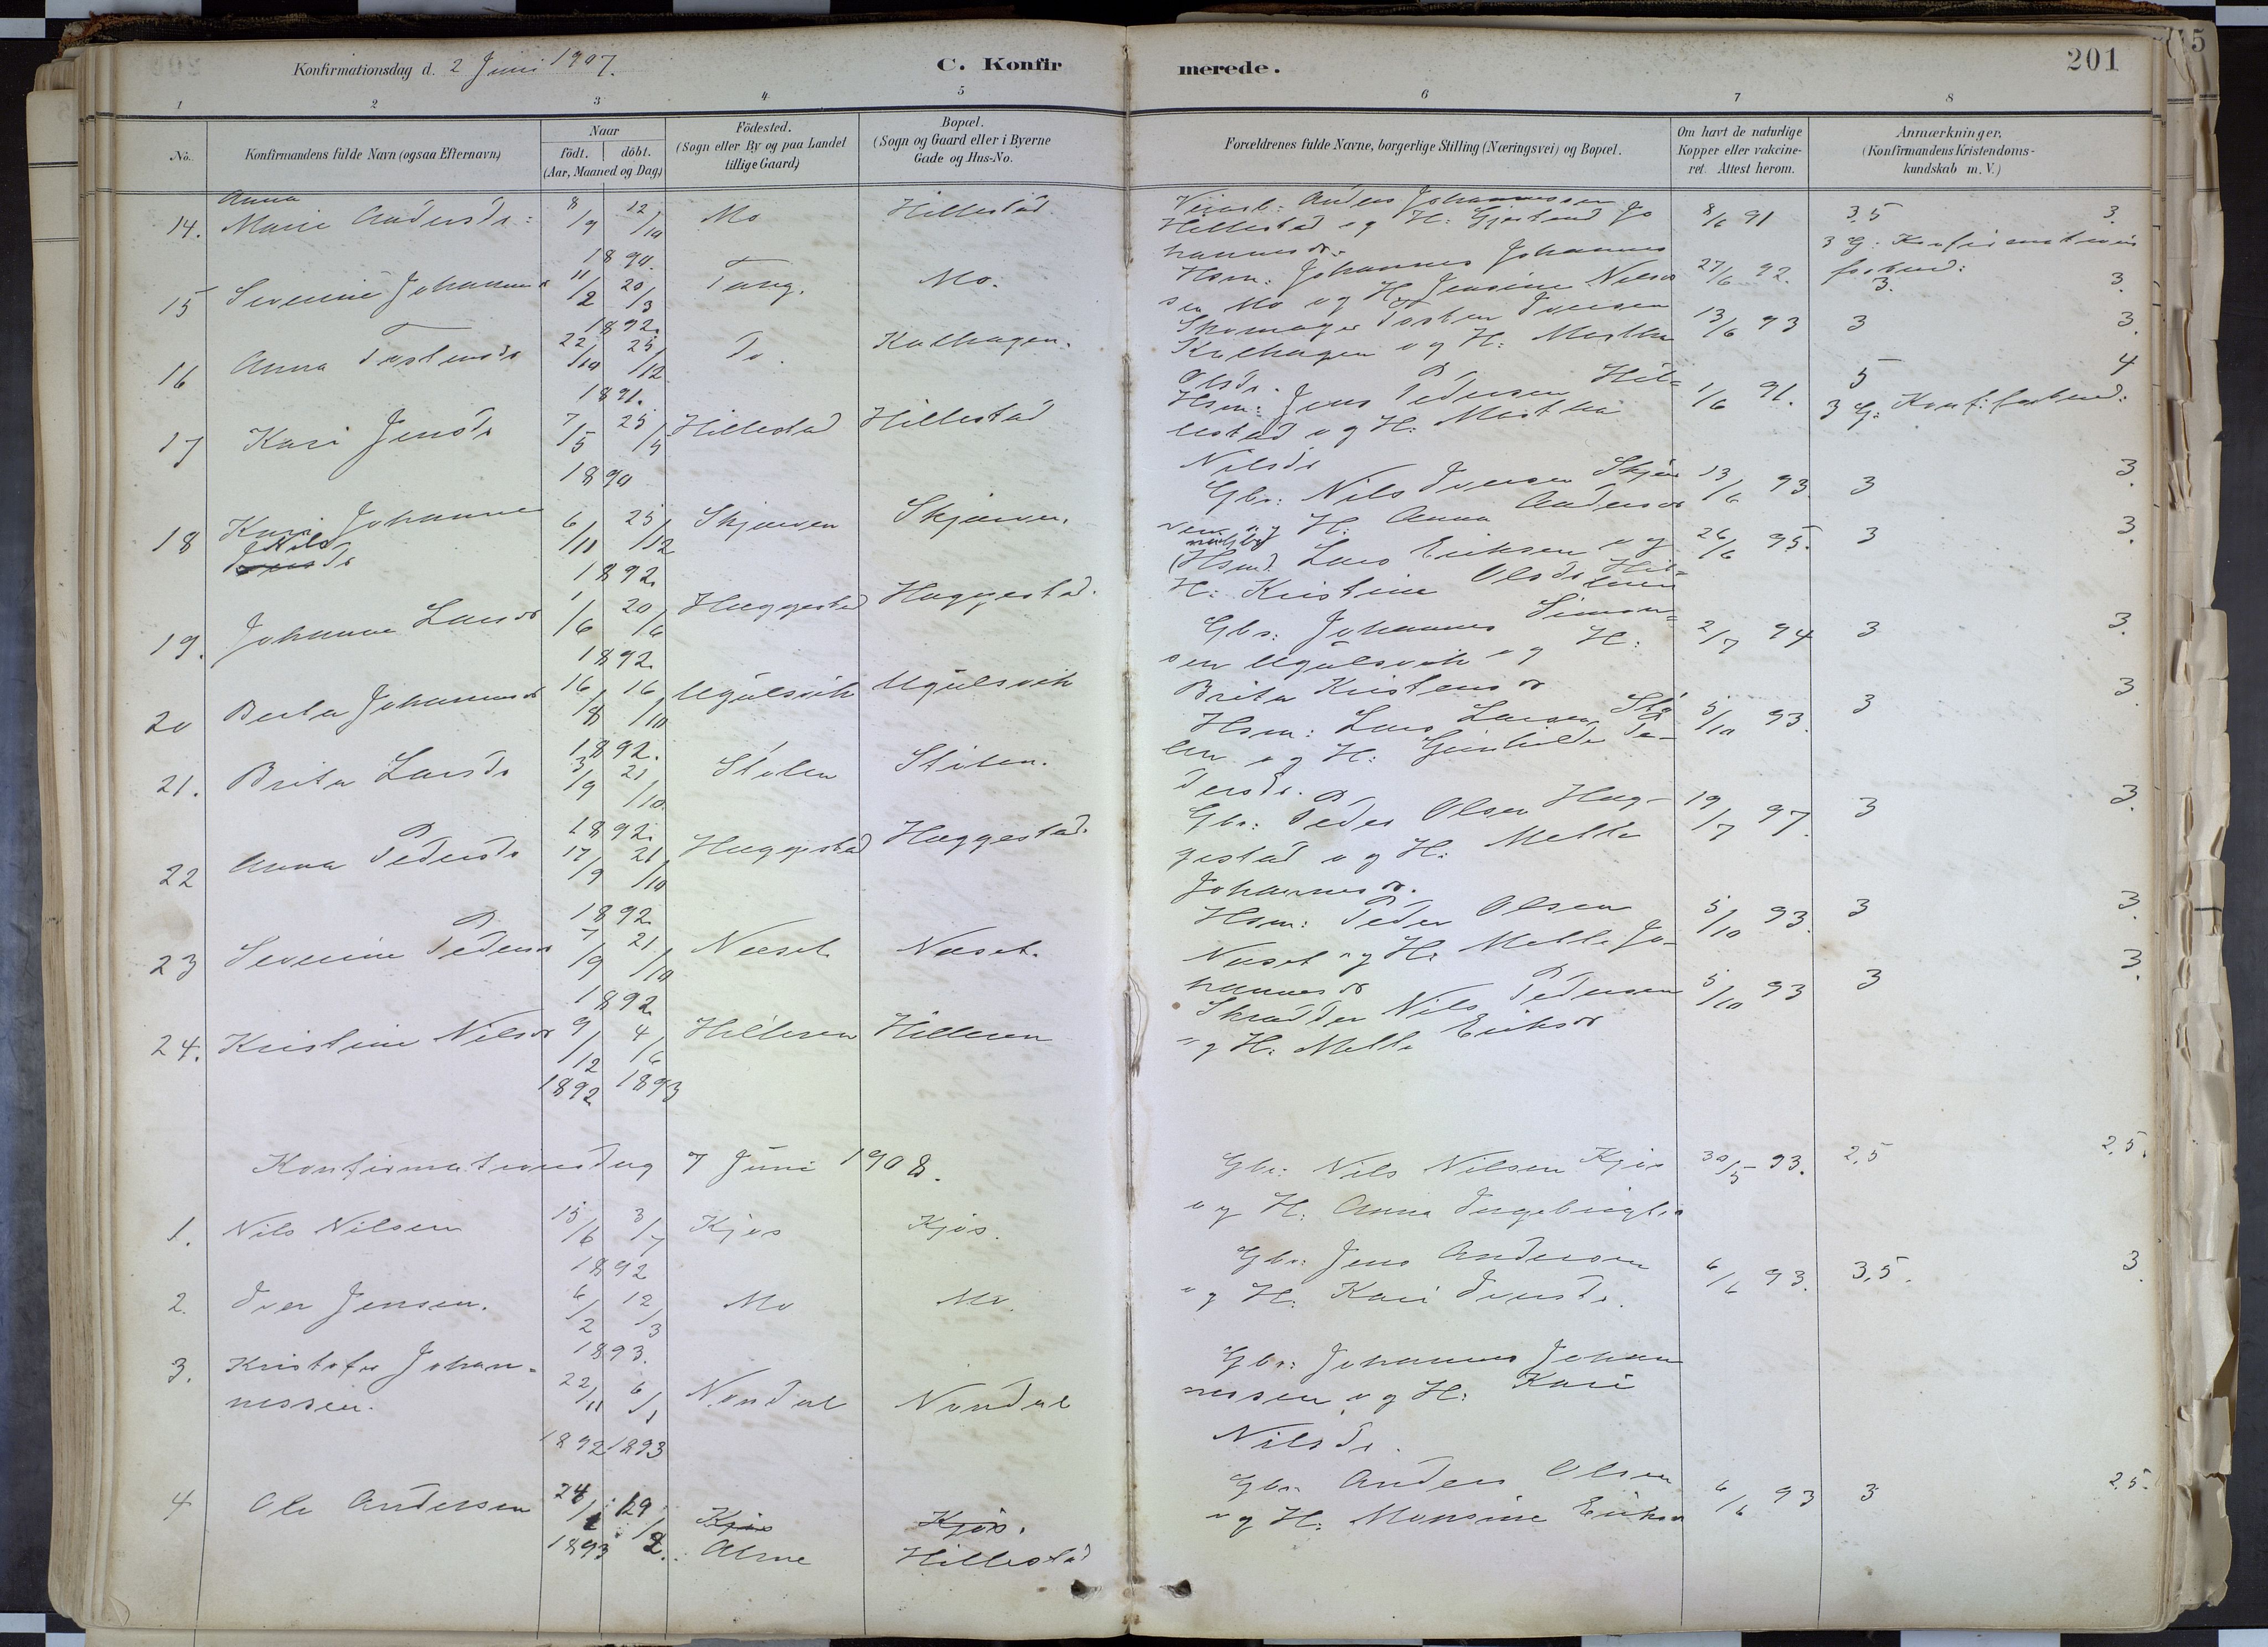 Konfirmationsdag d. 2 Juni 1907.
C. Konfirmerede.
201
1 2 3 4 5 6 7 8
No.
Konfirmandens fulde Navn (ogsaa Efternavn)
Naar
födt. döbt.
(Aar, Maaned og Dag)
Födested.
(Sogn eller By og paa Landet
tillige Gaard)
Bopæl.
(Sogn og Gaard eller i Byerne
Gade og Hus-No.
Forældrenes fulde Navne, borgerlige Stilling (Næringsvei) og Bopæl.
Om havt de naturlige
Kopper eller vakcine-
ret. Attest herom.
Anmærkninger,
(Konfirmandens Kristendoms-
kundskab m. V.)
Anna
14. Marie Andersdr: 8/9 12/10 Mo Hillestad
1890.
Anders Johannessen
Hillestad og H: Gjertrud Jo
hannesdr.
8/6 91 3,5 3.
3 G: Konfirmations
forbud:
15 Severine Johannesdr 11/2 20/3 Tang. Mo.
1892.
Hsm: Johannes Johannes
sen Mo og H. Jensine Nilsdr
27/6 92. 3. 3.
16 Anna Tostensdr 22/10 25/12 Do. Kalhagen.
1891.
Skomager Tosten Iversen
Kalhagen og H: Martha
Olsdr.
13/6 93 3 3.
17 Kari Jensdr 7/5 25/5 Hillestad Hillestad
1890
Hsm: Jens Pedersen Hil-
lestad og H: Martha
Nilsdr
1/6 91. 5 4
3 G: Konf: forbud:
18 Kari Johanne
Nilsdr 6/11 25/12 Skjerven Skjerven.
1892.
Gbr: Nils Iversen Skjer
ven og H: Anna Andersdr
13/6 93. 3 3.
19. Johanne Larsdr 1/6 20/6 Haggestad Haggestad.
1892.
(Hsmd. Lars Eriksen og
H: Kristine Olsdr
26/6 95. 3 3.
20 Berta Johannesdr 16/8 16/10 Ugulsvik Ugulsvik
1892.
Gbr: Johannes Simon-
sen Ugulsvik og H:
Brita Kristensdr
2/7 94 3 3.
21. Brita Larsdr 3/9 21/10 Stølen Stølen.
1892.
Hsm: Lars Larsen Stø
len og H: Gunhilde Pe-
dersdr.
5/10 93. 3 3
22 Anna Pedersdr 17/9 21/10 Haggestad Haggestad.
1892
Gbr: Peder Olsen Hag-
gestad og H: Metta
Johannesdr.
19/7 97. 3 3.
23 Severine Pedersdr 7/9 21/10 Næset Næset.
1892.
Hsm: Peder Olsen
Næset og H: Metta Jo-
hannesdr
5/10 93. 3 3.
24. Kristine Nilsdr 9/12 4/6 Hilleren Hilleren
1892 1893
Skrædder Nils Pedersen
og H: Metta Eriksdr
5/10 93 3 3.
Konfirmationsdag 7 Juni 1908.
1. Nils Nilsen 15/6 3/7 Kjøs Kjøs.
1892
Gbr: Nils Nilsen Kjøs
og H: Anna Ingebrigtsdr
30/5 93. 2,5 2,5.
2. Iver Jensen. 6/2 12/3 Mo Mo.
1893.
Gbr: Jens Andersen
og H: Kari Iversdr.
6/6 93. 3,5. 3.
3. Kristofer Johan-
nessen. 22/11 6/1 Nondal Nondal
1892 1893
Gbr: Johannes Johan
nessen og H: Kari
Nilsdr.
4 Ole Andersen 24/1 19/2. Kjøs Kjøs.
1893 Alme Hillestad
Gbr. Anders Olsen
og H: Monsine Eriksdr
6/6 93 3 2,5.